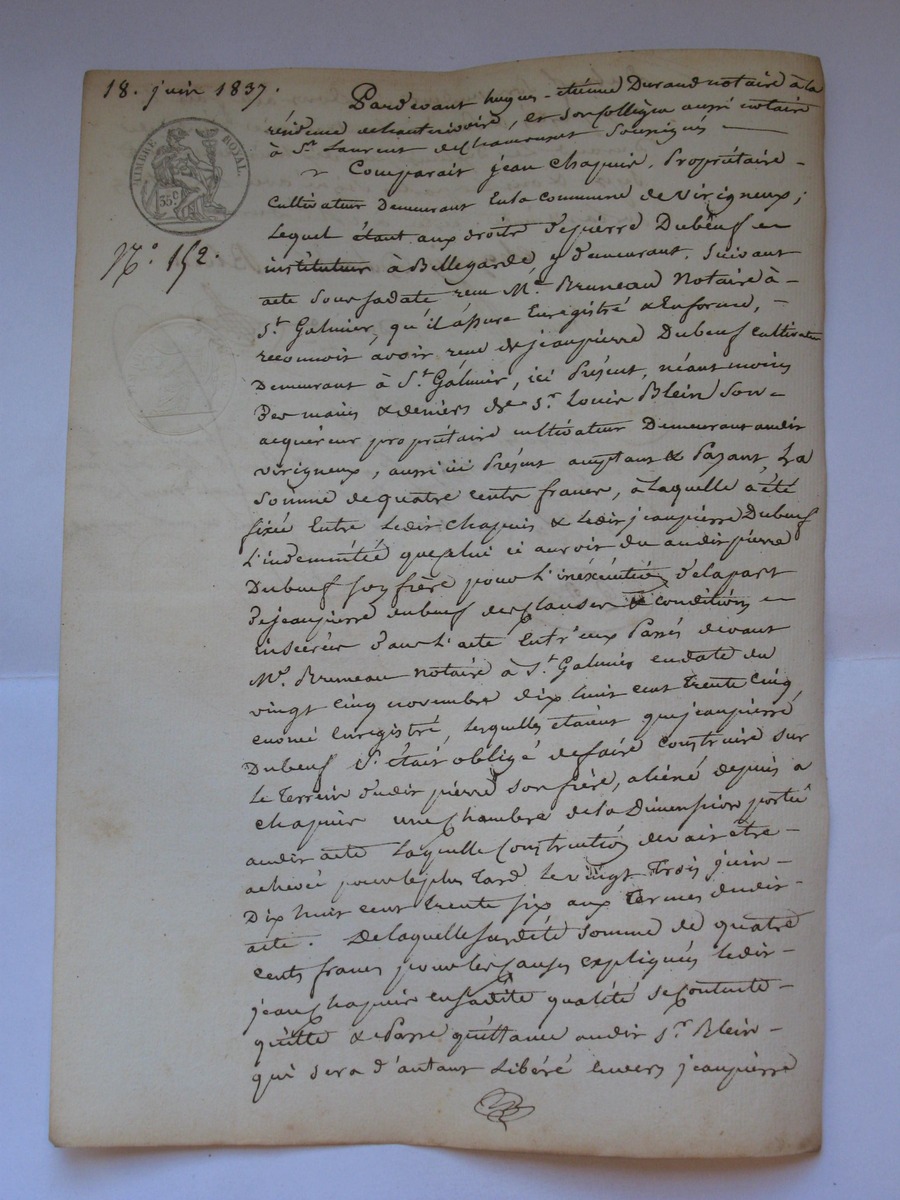 18. juin 1837.
Pardevant hugues-étienne Durand notaire à la
résidence de hauterivoire, et son collègue aussi notaire
à St. Laurent de chamousset Soussignés
TIMBRE ROYAL
35 c
Comparait jean Chapuis, Propriétaire
Cultivateur Demeurant En la commune de Virigneux;
Lequel étant aux droits de pierre Dubeuf
instituteur à Bellegarde y demeurant, Suivant
N°. 152.
acte Sous sa date reçu Me. Bruneau Notaire à
St. Galmier, qu'il assure Enregistré & En forme,
reconnoit avoir reçu de jeanpierre Dubeuf cultivateur
Demeurant à St. Galmier, ici Présent, néantmoins
Des mains & deniers de Sr. Louis Blein Son
acquéreur propriétaire cultivateur Demeurant audit
virigneux, aussi ici Présent comptant & Payant La
Somme de quatre cents francs, à laquelle a été
fixée Entre Ledit Chapuis & Ledit jeanpierre Dubeuf
L'indemnitée que celui ci auroit du audit pierre
Dubeuf son frère pour L'inéxécution de la part
de jeanpierre dubeuf des clauses & conditions
insérées dans L'acte Entr'eux Passés devant
Me. Bruneau notaire à St. Galmier en date du
vingt cinq novembre dix huit cent trente cinq
Enregistré, Lesquelles étaient que jeanpierre
Dubeuf S'était obligé de faire Construire sur
Le Terrein dudit pierre son frère, aliéné depuis a
chapuis une chambre de la Dimension portée
audit acte Laquelle Construction devait être
achevée pour le plus Tard Le vingt Trois juin
Dix huit cent trente six aux Termes dudit
acte. De laquelle susdite Somme de quatre
cents francs pour les causes expliquées Ledit
jean Chapuis en sadite qualité se contente
quitte & Passe quittance audit Sr. Blein
qui sera d'autant Libéré envers jeanpierre